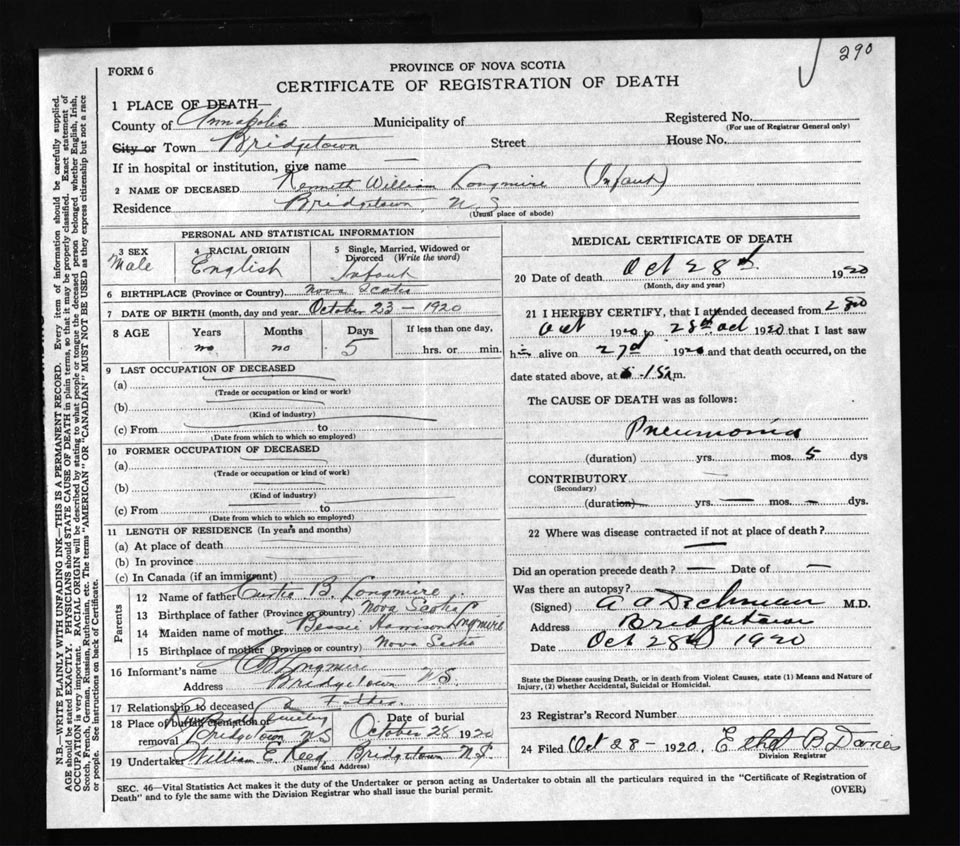 290
FORM 6
PROVINCE OF NOVA SCOTIA
CERTIFICATE OF REGISTRATION OF DEATH
1 PLACE OF DEATH—
County of Annapolis Municipality of Registered No.
(For use of Registrar General only)
City or Town Bridgetown Street House No.
If in hospital or institution, give name —
2 NAME OF DECEASED Kenneth William Longmire (Infant)
Residence Bridgetown, N.S.
(Usual place of abode)
PERSONAL AND STATISTICAL INFORMATION
3 SEX Male
4 RACIAL ORIGIN English
5 Single, Married, Widowed or Divorced (Write the word) Infant
6 BIRTHPLACE (Province or Country) Nova Scotia
7 DATE OF BIRTH (month, day and year) October 23 - 1920
8 AGE Years Months Days If less than one day,
no no 5 hrs. or min.
9 LAST OCCUPATION OF DECEASED
(a)
(Trade or occupation or kind or work)
(b)
(Kind of industry)
(c) From to
(Date from which to which so employed)
10 FORMER OCCUPATION OF DECEASED
(a)
(Trade or occupation or kind of work)
(b)
(Kind of industry)
(c) From to
(Date from which to which so employed)
11 LENGTH OF RESIDENCE (In years and months)
(a) At place of death
(b) In province
(c) In Canada (if an immigrant)
Parents
12 Name of father Curtis B. Longmire
13 Birthplace of father (Province or country) Nova Scotia
14 Maiden name of mother Bessie Harrison Longmire
15 Birthplace of mother (Province or country) Nova Scotia
16 Informant's name C B Longmire
Address Bridgetown N.S.
17 Relationship to deceased Father
18 Place of burial cremation or removal Bridgetown NS
Date of burial October 28 1920
19 Undertaker William E. Reed Bridgetown N.S.
(Name and Address)
MEDICAL CERTIFICATE OF DEATH
20 Date of death Oct 28th 1920
(Month, day and year)
21 I HEREBY CERTIFY, that I attended deceased from
Oct 1920 to 28th Oct 1920 that I last saw
h alive on 27 1920 and that death occurred, on the
date stated above, at .15 m.
The CAUSE OF DEATH was as follows:
Pneumonia
(duration) yrs. mos. 5 dys
CONTRIBUTORY —
(Secondary)
(duration) — yrs. — mos. — dys.
22 Where was disease contracted if not at place of death?
—
Did an operation precede death? — Date of —
Was there an autopsy?
(Signed) A A Dechman M.D.
Address Bridgetown
Date Oct 28th 1920
State the Disease causing Death, or in death from Violent Causes, state (1) Means and Nature of
Injury, (2) whether Accidental, Suicidal or Homicidal.
23 Registrar's Record Number
24 Filed Oct 28 - 1920. Ethel B Davies
Division Registrar
SEC. 46—Vital Statistics Act makes it the duty of the Undertaker or person acting as Undertaker to obtain all the particulars required in the "Certificate of Registration of
Death" and to fyle the same with the Division Registrar who shall issue the burial permit. (OVER)
N.B.—WRITE PLAINLY WITH UNFADING INK—THIS IS A PERMANENT RECORD. Every item of information should be carefully supplied.
AGE should be stated EXACTLY. PHYSICIANS should STATE CAUSE OF DEATH in plain terms, so that it may be properly classified. Exact statement of
OCCUPATION is very important. RACIAL ORIGIN will be described by stating to what people or tongue the deceased person belonged whether English, Irish,
Scotch, French, German, Russian, Ruthenian, etc. The terms "AMERICAN" OR "CANADIAN" MUST NOT BE USED as they express citizenship but not a race
or people. See instructions on back of Certificate.